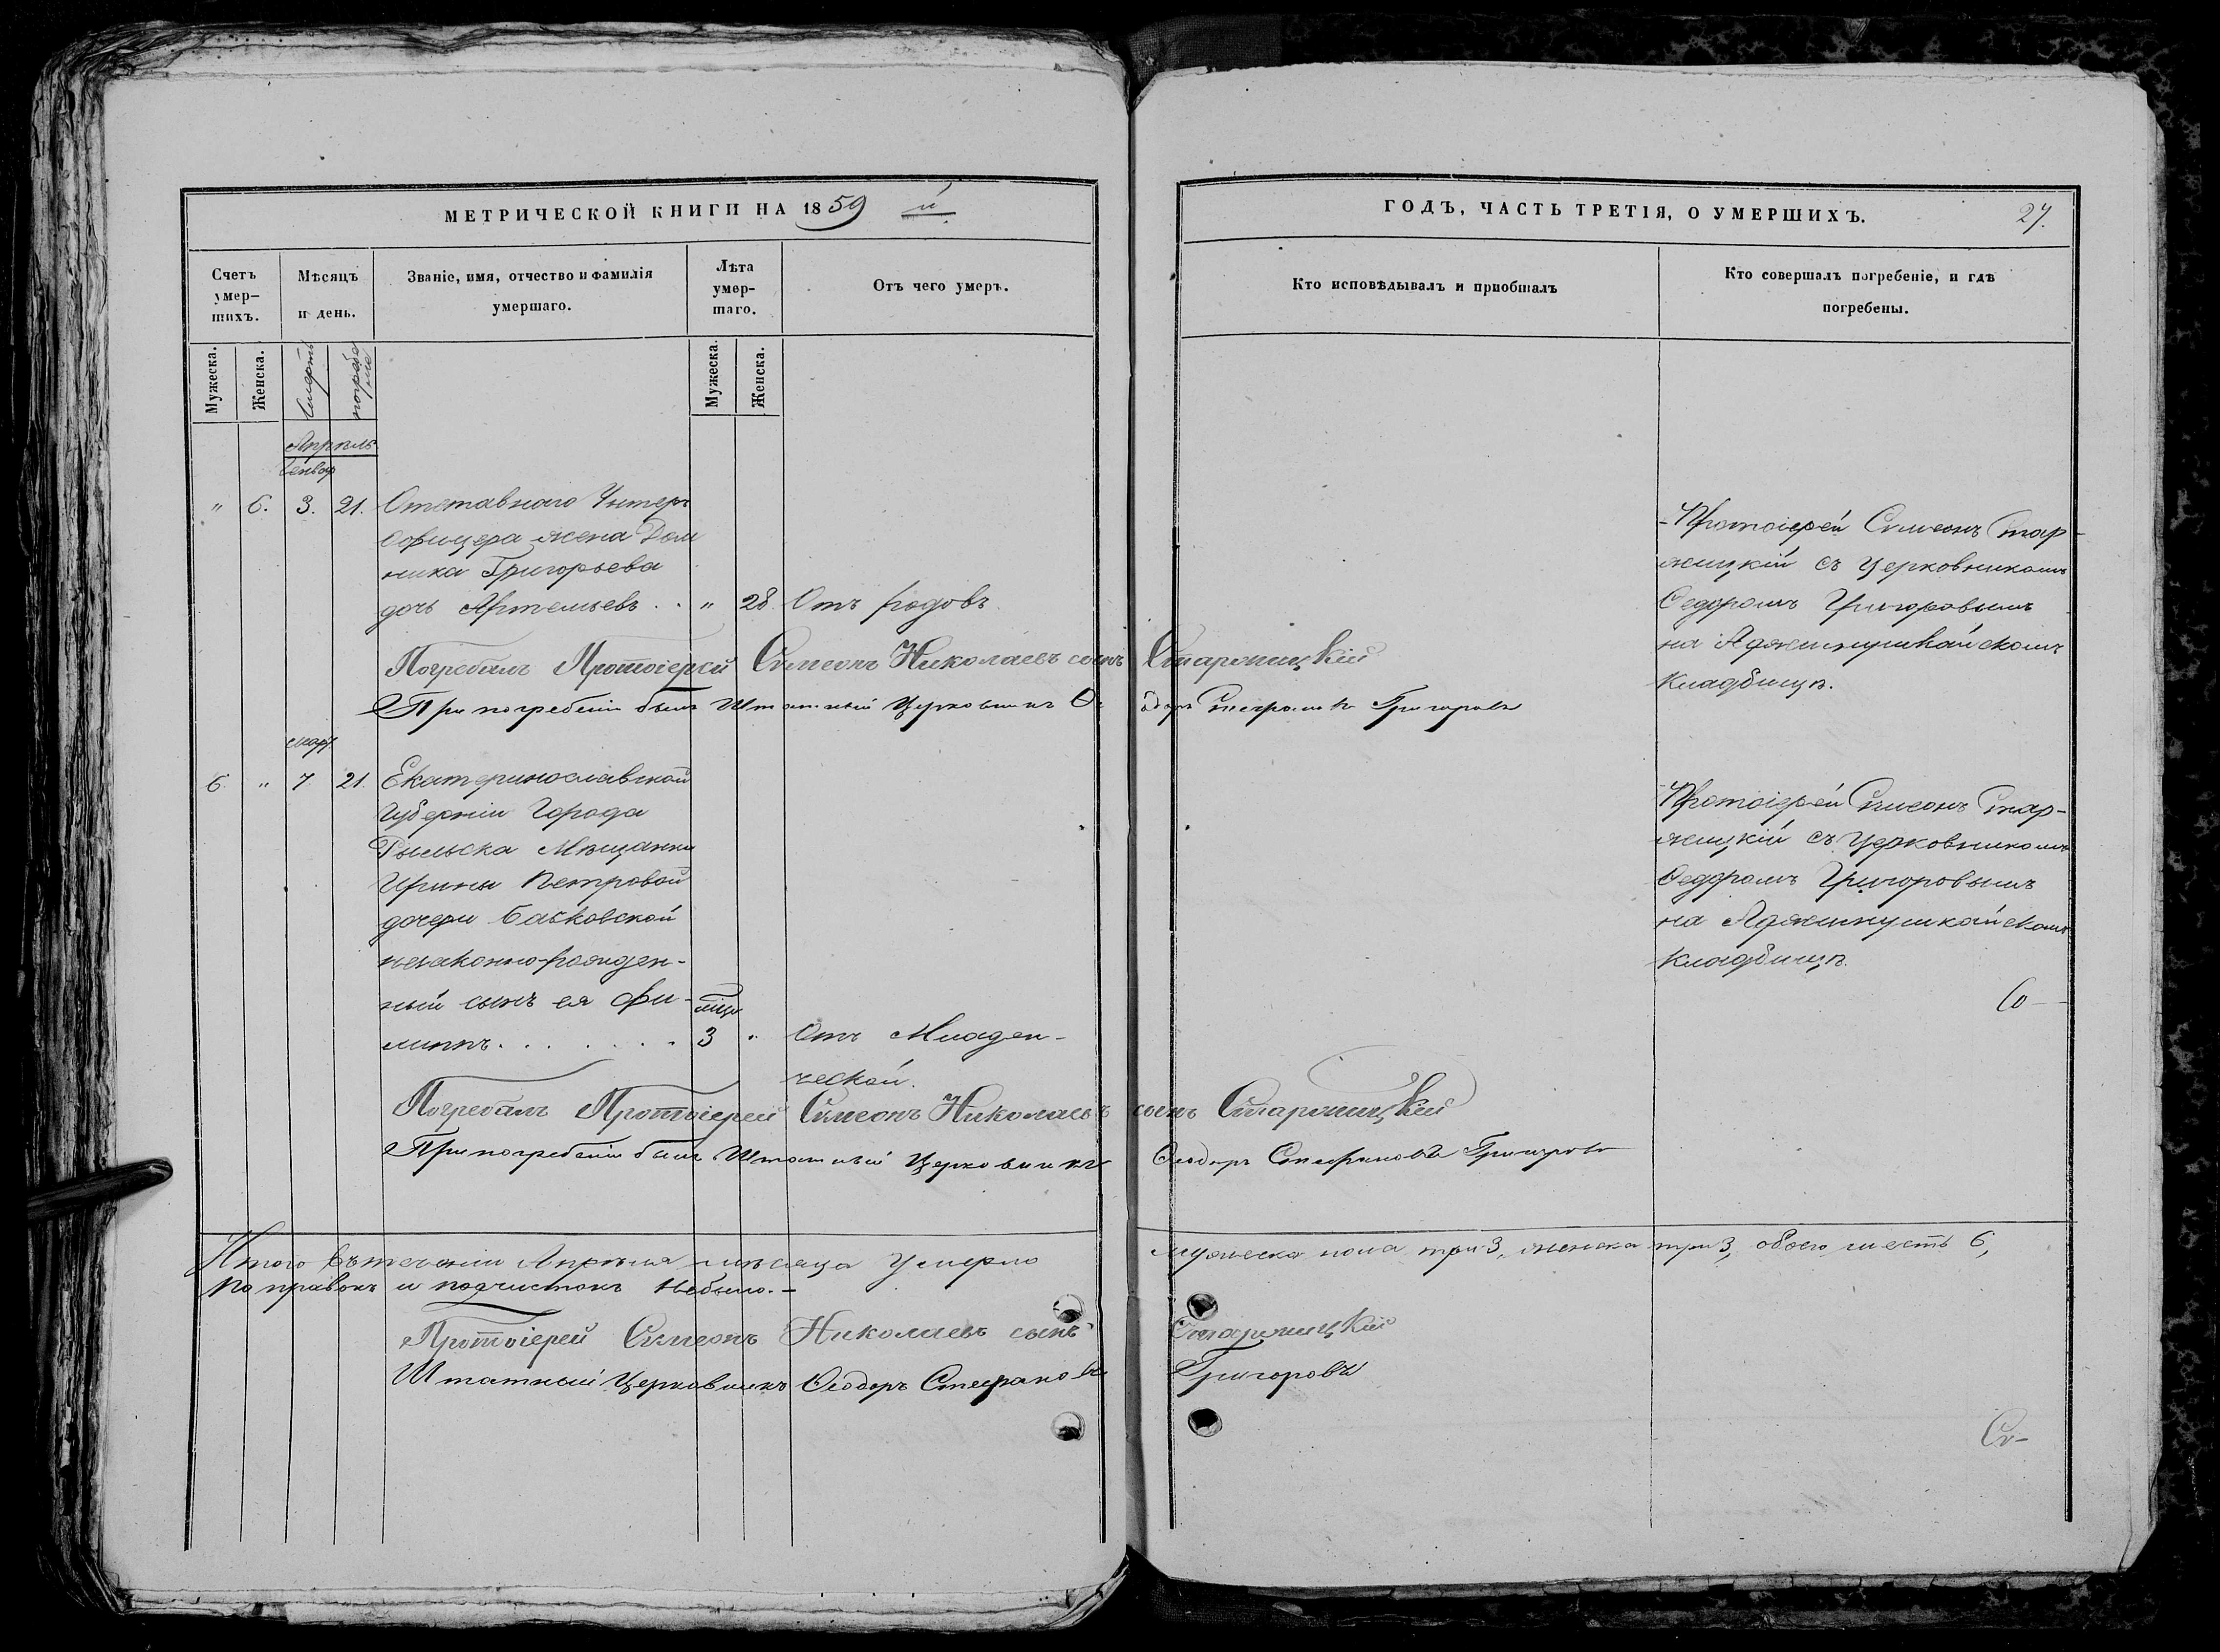 МЕТРИЧЕСКОЙ КНИГИ НА 1859 й
ГОДЪ, ЧАСТЬ ТРЕТІЯ, О УМЕРШИХЪ.
27.
Счетъ умер-
шихъ.
Мѣсяцъ
и день.
Званіе, имя, отчество и фамилія
умершаго.
Лѣта
умер-
шаго.
Отъ чего умеръ.
Кто исповѣдывалъ и приобщалъ
Кто совершалъ погребеніе, и гдѣ
погребены.
Мужеска.
Женска.
Смерть
погребе
ніе
Мужеска.
Женска.
Апрѣль
Генвар
" 6. 3. 21. Отставнаго Унтеръ
Офицера жена Дом
ника Григорьева
дочь Артемьевъ . . " 28 Отъ родовъ
Протоіерей Симеонъ Стар-
жицкій съ Церковникомъ
Ѳедоромъ Григоровымъ
на Аджимушкайскомъ
Кладбищѣ.
Погребалъ Протоіерей Симеонъ Николаевъ сынъ Старжицкій
При погребеніи былъ Штатный Церковникъ Ѳеодоръ Стефановъ Григоровъ
март.
6. " 7. 21. Екатеринославской
Губерніи Города
Рыльска Мѣщанки
Ирины Петровой
дочери Баськовской
незаконно-рожден-
ный сынъ ея Фи-
липпъ . . . . . . . 3 " Отъ Младен-
ческой.
Протоіерей Симеонъ Стар-
жицкій съ Церковникомъ
Ѳедоромъ Григоровымъ
на Аджимушкайскомъ
Кладбищѣ.
Погребалъ Протоіерей Симеонъ Николаевъ сынъ Старжицкій
При погребеніи былъ Штатный Церковникъ Ѳеодоръ Стефановъ Григоровъ
Итого въ теченіи Апрѣля мѣсяца Умерло мужеска пола три 3, женска три 3, обоего шесть 6,
Поправокъ и подчистокъ небыло. –
Протоіерей Симеонъ Николаевъ сынъ Старжицкій
Штатный Церковникъ Ѳеодоръ Стефановъ Григоровъ